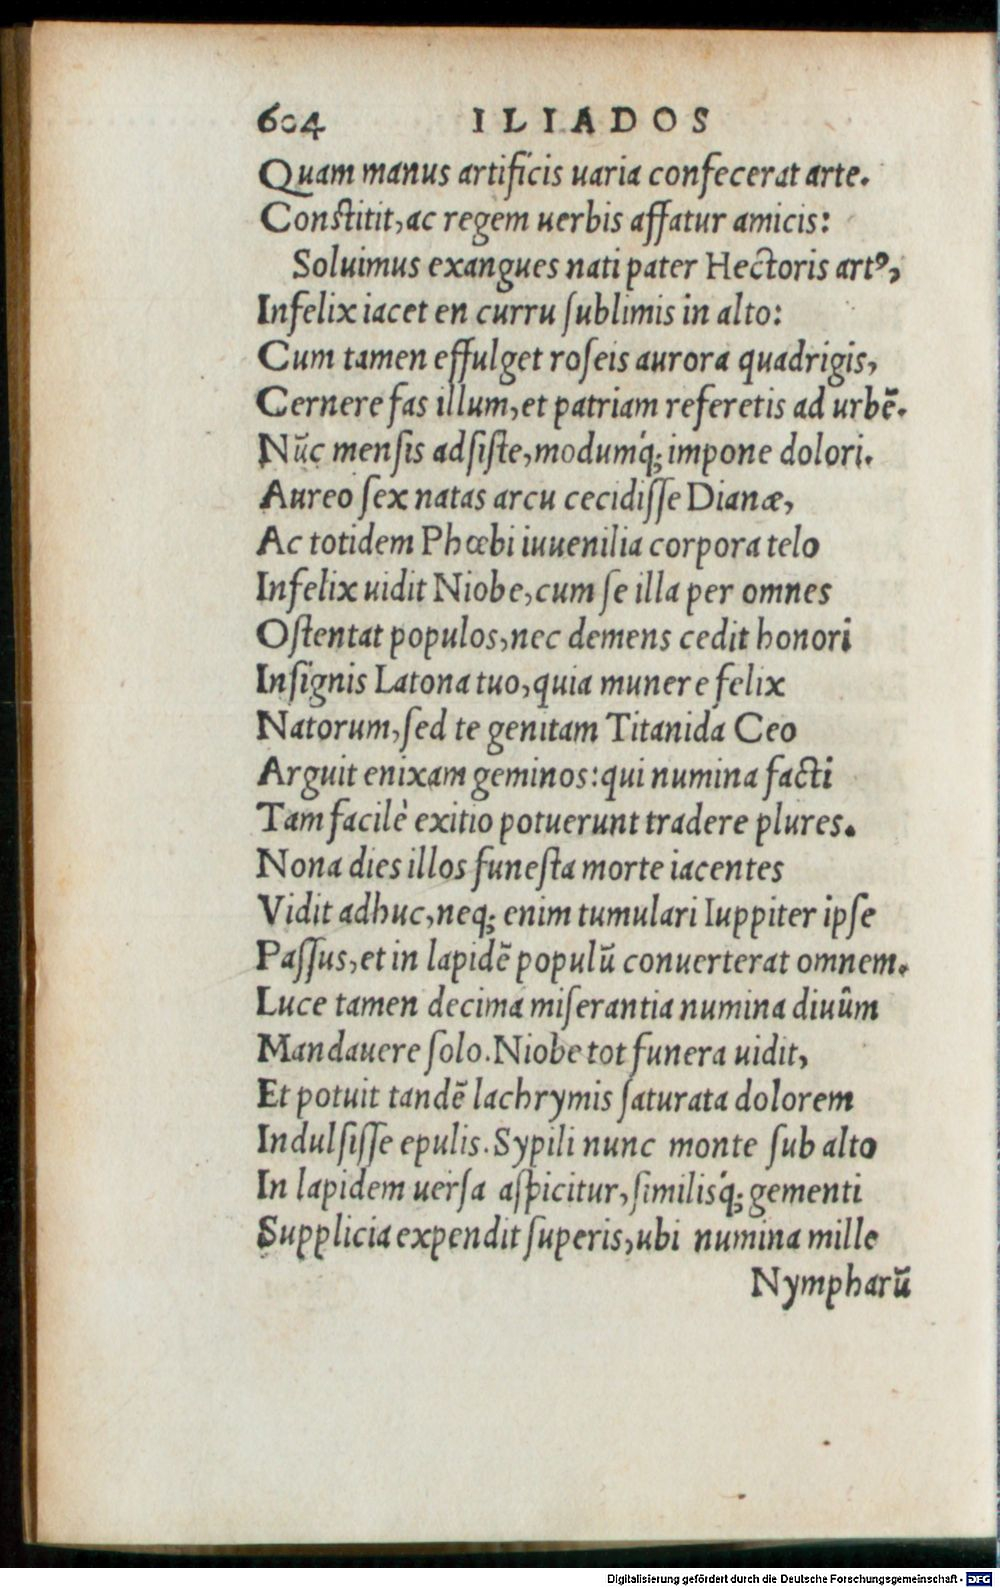 604 ILIADOS
Quam manus artificis uaria confecerat arte.
Constitit, ac regem uerbis affatur amicis:
Soluimus exangues nati pater Hectoris artꝰ,
Infelix iacet en curru ſublimis in alto:
Cum tamen effulget roſeis aurora quadrigis,
Cernere fas illum, et patriam referetis ad urbē.
Nūc menſis adſiſte, modumq́; impone dolori.
Aureo ſex natas arcu cecidiſſe Dianæ,
Ac totidem Phœbi iuuenilia corpora telo
Infelix uidit Niobe, cum ſe illa per omnes
Oſtentat populos, nec demens cedit honori
Inſignis Latona tuo, quia munere felix
Natorum, ſed te genitam Titanida Ceo
Arguit enixam geminos: qui numina facti
Tam facilè exitio potuerunt tradere plures.
Nona dies illos funeſta morte iacentes
Vidit adhuc, neq; enim tumulari Iuppiter ipſe
Paſſus, et in lapidē populū conuerterat omnem.
Luce tamen decima miſerantia numina diuûm
Mandauere ſolo. Niobe tot funera uidit,
Et potuit tandē lachrymis ſaturata dolorem
Indulſiſſe epulis. Sypili nunc monte ſub alto
In lapidem uerſa aſpicitur, ſimilisq́; gementi
Supplicia expendit ſuperis, ubi numina mille
Nympharū
Digitalisierung gefördert durch die Deutsche Forschungsgemeinschaft - DFG